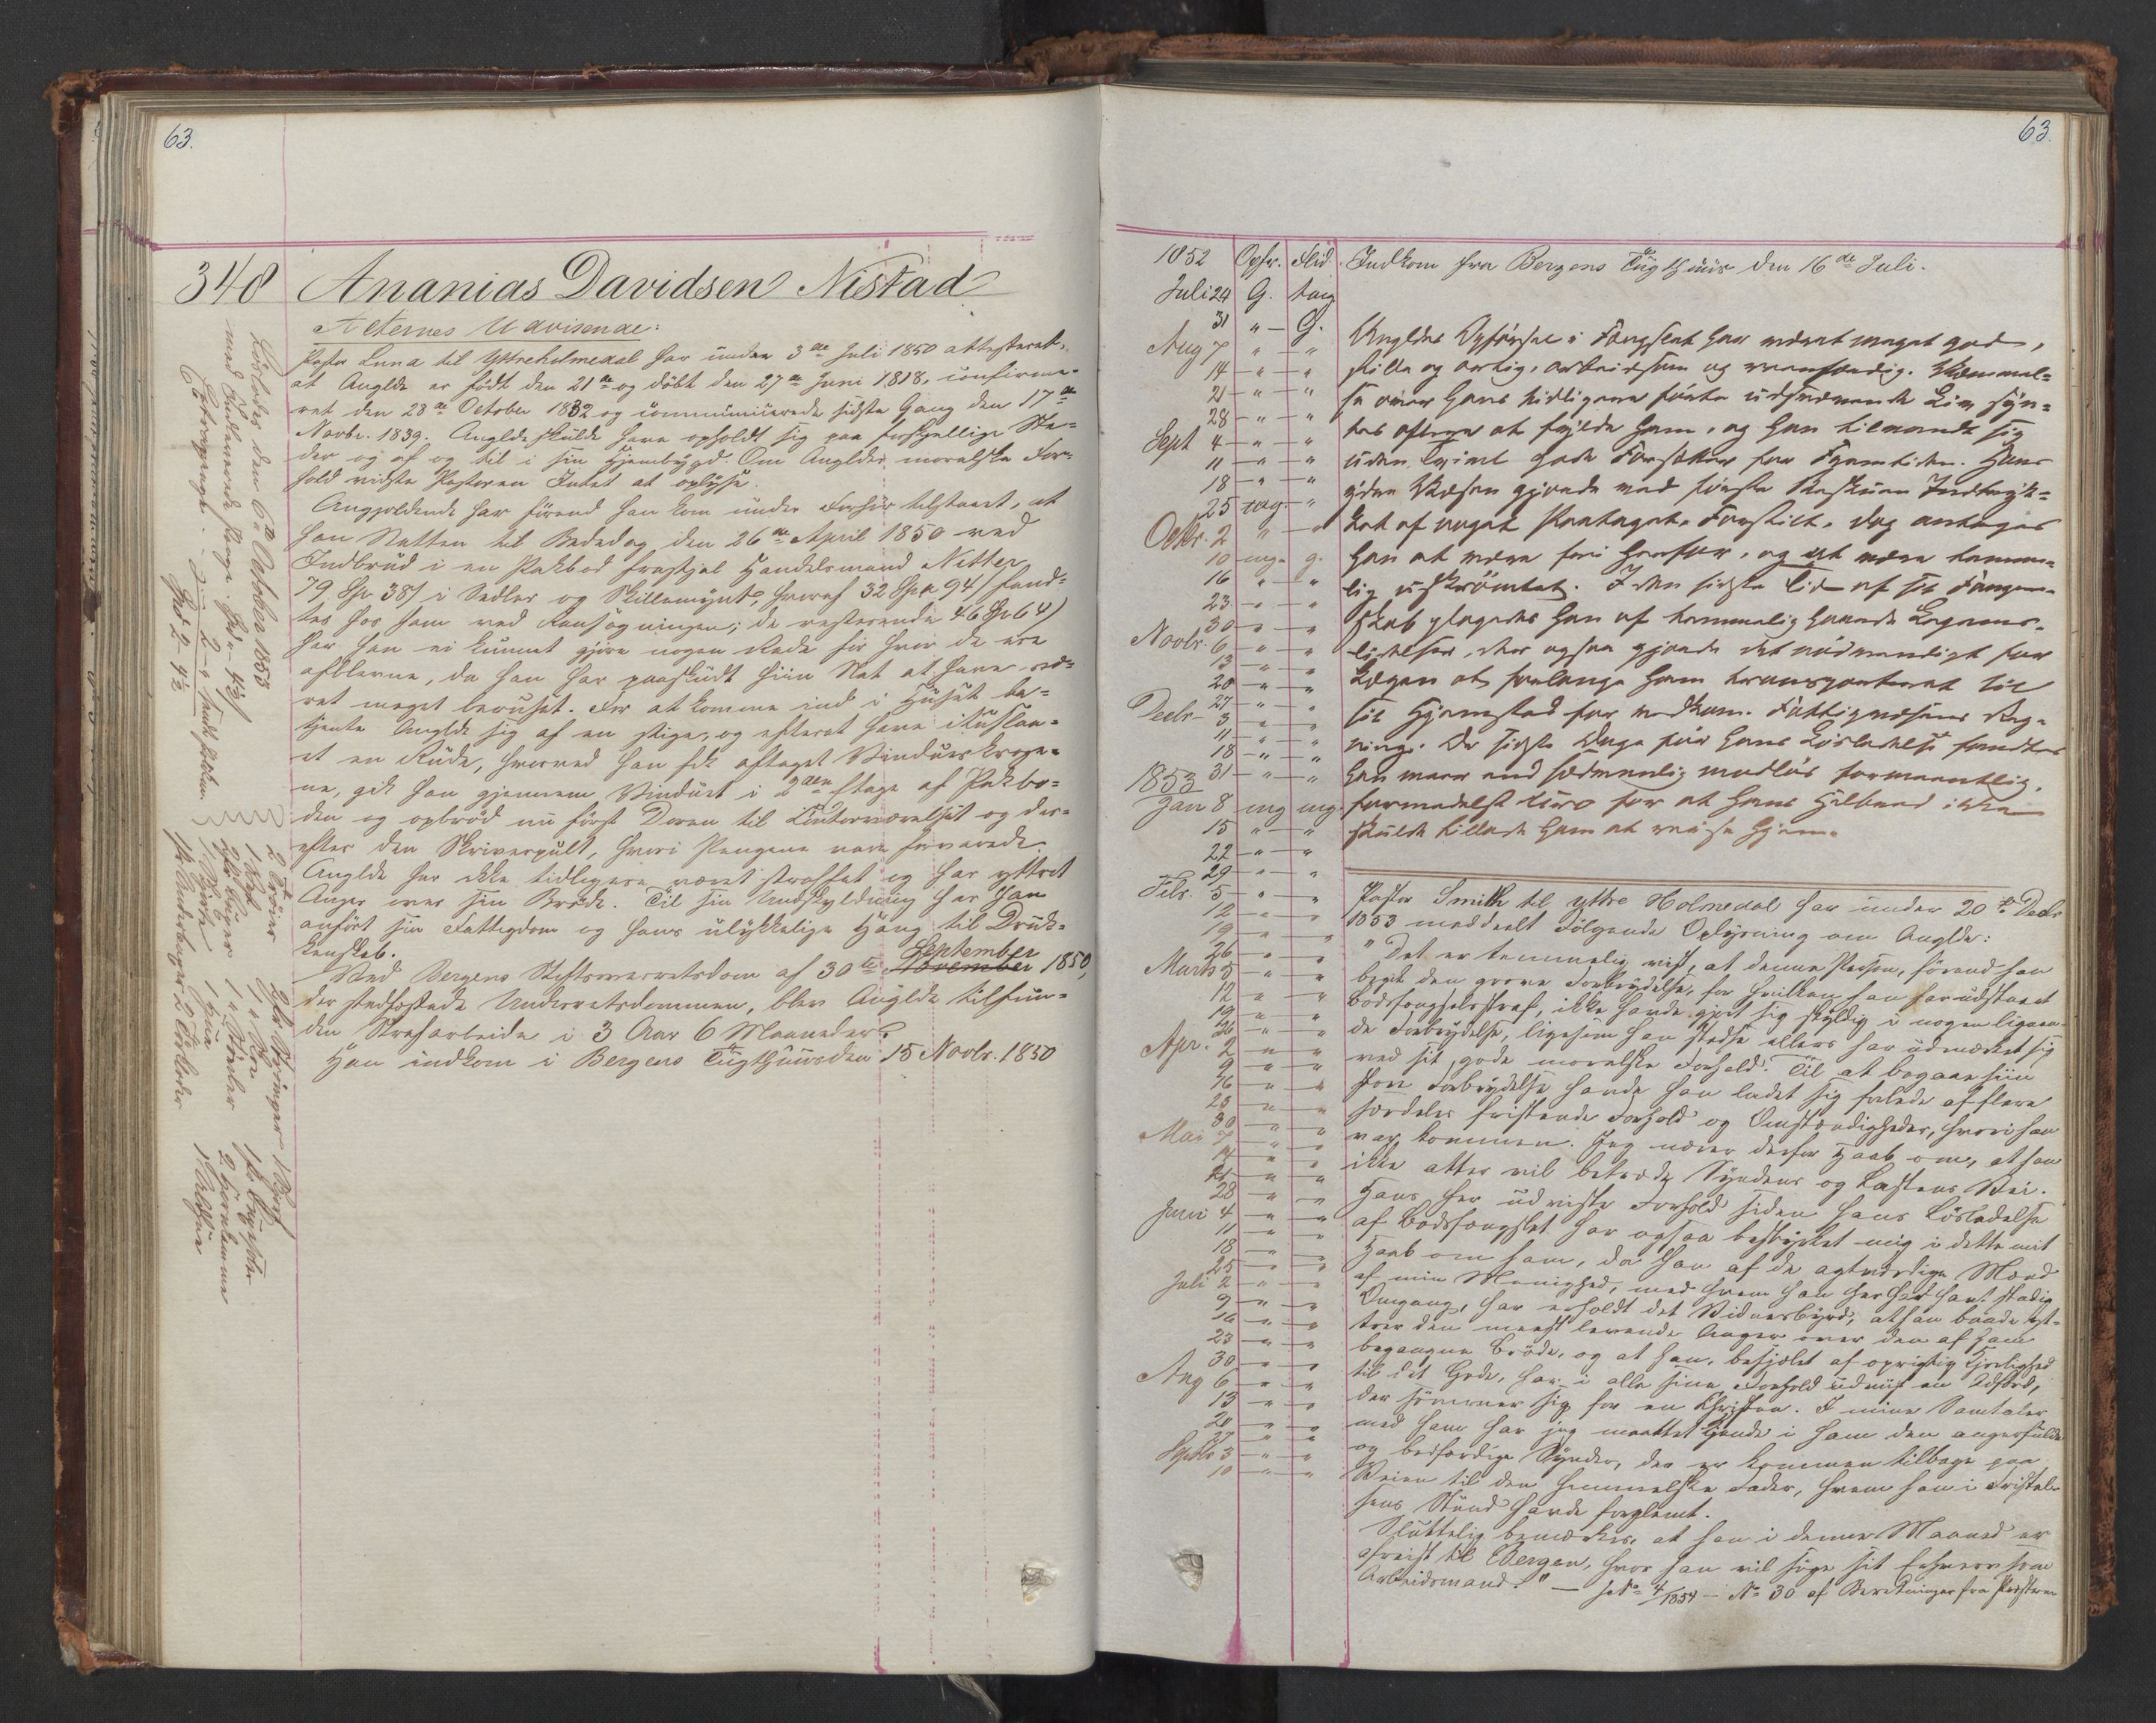 63.
348 Ananias Davidsen Nistad
Acternes Udvisende:
Pastor Lunn til Yttreholmedal har under 3die Juli 1850 attesteret,
at Anglde er født den 21de og döbt den 27de Juni 1818, confirme-
ret den 28de October 1832 og communicerede sidste Gang den 17de
Novbr. 1839. Anglde skulde have opholdt sig paa forskjellige Ste-
der og af og til i sin Hjembygd. Om Angldes moralske For-
hold vidste Pastoren Intet at oplyse.
Angjældende har förend han kom under Forhör tilstaaet, at
han Natten til Bededag den 26de April 1850 ved
Indbrud i en Pakbod frastjal Handelsmand Netter
79 Spd 38 s i Sedler og Skillemynt, hvoraf 32 Spd 94 s fand-
tes hos ham ved Ransagningen; de resterende 46 Spd 64 s
har han ei kunnet gjöre nogen Rede for hvor de ere
afblevne, da han har paaskudt hiin Nat at have væ-
ret meget beruset. For at komme ind i Huset be-
tjente Anglde sig af en Stige, og efterat have ituslaa-
et en Rude, hvorved han fik aftaget Vindueskroge-
ne, gik han gjennem Vinduet i 2den Etage af Pakbo-
den og opbröd nu först Doren til Contorværelset og der-
efter den Skriverpult, hvori Pengene vare forvarede.
Anglde har ikke tidligere været straffet og har yttret
Anger over sin Bröde. Til sin Undskyldning har han
anfört sin Fattigdom og hans ulykkelige Hang til Druk-
kenskab.
September
Ved Bergens Stiftsoverretsdom af 30te November 1850,
der stedfæstede Underretsdommen, blev Anglde tilfun-
den Strafarbeide i 3 Aar 6 Maaneder.
Han indkom i Bergens Tugthuus den 15 Novbr. 1850
Lösladt den 6te October 1853
med Indtjenende Penge
2 Tröier
1 Vest
1 Skjorte
2 Forklæder
63.
1852 Opfr. Flid. Indkom fra Bergens Tugthuus den 16de Juli.
Juli 24 G. tag
31 " G.
Aug 7 " "
14 " "
21 " "
28 " "
Sept 4 " "
11 " "
18 " "
25 tag. "
Octbr. 2 " "
10 mg. g.
16 " "
23 " "
30 " "
Novbr. 6 " "
13 " "
20 " "
27 " "
Decbr 3 " "
11 " "
18 " "
31 " "
1853
Jan 8 mg mg
15 " "
22 " "
29 " "
Febr. 5 " "
12 " "
19 " "
26 " "
Marts 5 " "
12 " "
19 " "
26 " "
Apr. 2 " "
9 " "
16 " "
23 " "
30 " "
Mai 7 " "
14 " "
21 " "
28 " "
Juni 4 " "
11 " "
18 " "
25 " "
Juli 2 " "
9 " "
16 " "
23 " "
30 " "
Aug 6 " "
13 " "
20 " "
27 " "
Septbr 3 " "
10 " "
Angldes Opförsel i Fængslet har været meget god,
stille og artig, arbeidsom og
se over hans tidligere förte udsvævende Liv syn-
tes oftere at fylde ham, og han tilvandt sig
uden Tvivl gode Forsætter for Fremtiden. Hans
ydre Væsen gjorde ved förste Indtryk-
ket af noget Paataget. Forstilt, dog antages
han at være fri herfor, og at være temme-
lig uskrömtet. I den sidste Tid af sit Fangen-
skab plagedes han af temmelig haarde Legems-
lidelser, der ogsaa gjorde det nödvendigt for
Lægen at forlange ham transporteret til
sit Hjemsted for vedkom. Fattigvæsens Reg-
ning. De sidste Dage för hans Lösladelse fandtes
han mere end sædvanlig modlös formeentlig,
formedelst Uro for at hans Helbred ikke
skulde tillade ham at reise hjem.
Pastor Smith til yttre Holmedal har under 20de Decbr
1853 meddeelt Fölgende Oplysning om Anglde:
"Det er temmelig vist, at denne Person, förend han
begik den grove Forbrydelse, for hvilken han har udstaaet
Bodsfængselsstraf, ikke havde gjort sig skyldig i nogen lignen-
de Forbrydelse, ligesom han stedse ellers har udmærket sig
ved sit gode moralske Forhold. Til at begaae hiin
store Forbrydelse havde han ladet sig forlede af flere
særdeles fristende Forhold og Omstændigheder, hvori han
var kommen. Jeg nærer derfor Haab om, at han
ikke atter vil betræde Syndens og Lastens Vei.
Hans her udviste Forhold siden hans Lösladelse
af Bodsfængslet har ogsaa bestyrket mig i dette mit
Haab om ham, da han af de agtværdige Mænd
af min Menighed, med hvem han her har havt stadig
Omgang, har erholdt det Vidnesbyrd, at han baade yt-
trer den meest levende Anger over den af ham
begangne Bröde, og at han, besjælet af oprigtig Kjerlighed
til det Gode, har i alle sine Forhold udviist en Adfærd,
der sömmer sig for en Christen. I mine Samtaler
med ham har jeg maattet finde i ham den angerfulde
og bodfærdige Synder, der er kommen tilbage paa
Veien til den himmelske Fader, hvem han i Fristel-
sens Stund havde forglemt.
Sluttelig bemærkes, at han i denne Maaned er
afreist til Bergen, hvor han vil söge sit Erhverv som
Arbeidsmand." — 4/1854 — No 30 af Beretninger fra Præsterne